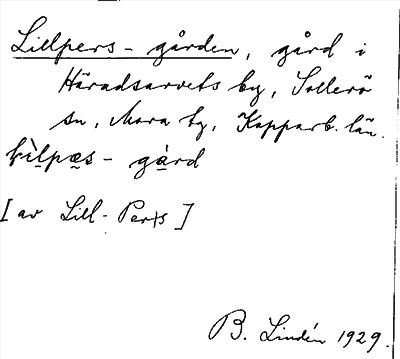 Lillpers-gården, gård i
Häradsarvets by, Sollerö
sn, Mora tg, Kopparb. län.
lìlpæs-gàrd
[av Lill-Pers]
B. Lindén 1929.